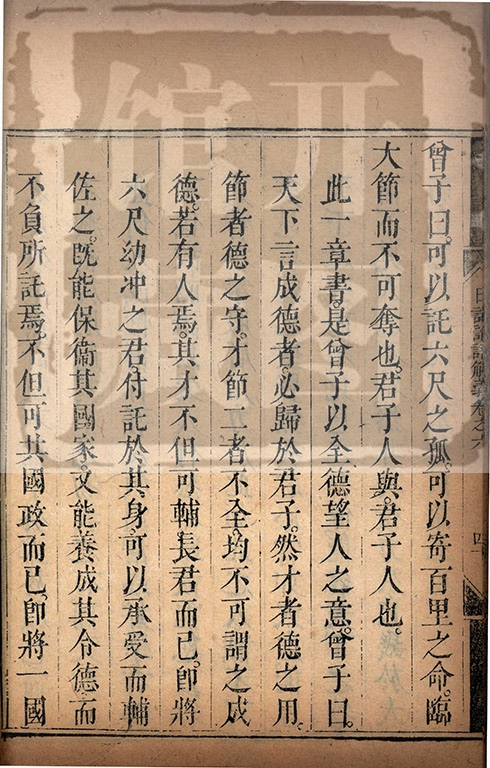 曾子曰。可以託六尺之孤。可以寄百里之命。臨
大節而不可奪也。君子人與。君子人也。
此一章書。是曾子以全德望人之意。曾子曰。
天下言成德者。必歸於君子。然才者德之用。
節者德之守。才節二者不全。均不可謂之成
德。若有人焉。其才不但可輔長君而已。卽將
六尺幼冲之君。付託於其身。可以承受而輔
佐之。旣能保衞其國家。又能養成其令德。而
不負所託焉。不但可共國政而已。卽將一國
日講 解義卷之六